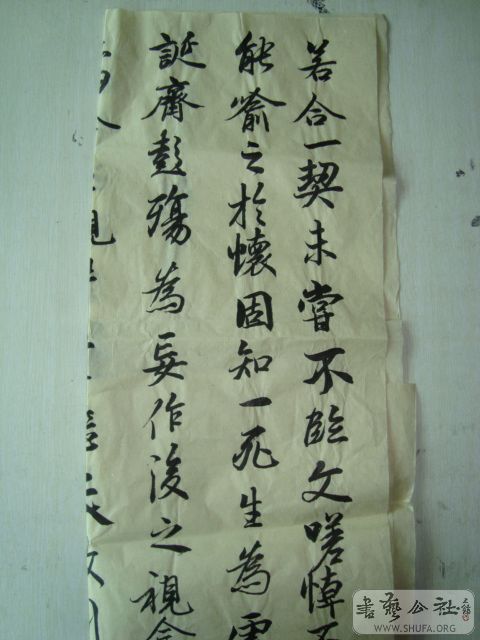 若合一契未嘗不臨文嗟悼不
能喻之於懷固知一死生為虛
誕齊彭殤為妄作後之視今
書藝公社
WWW.SHUFA.ORG